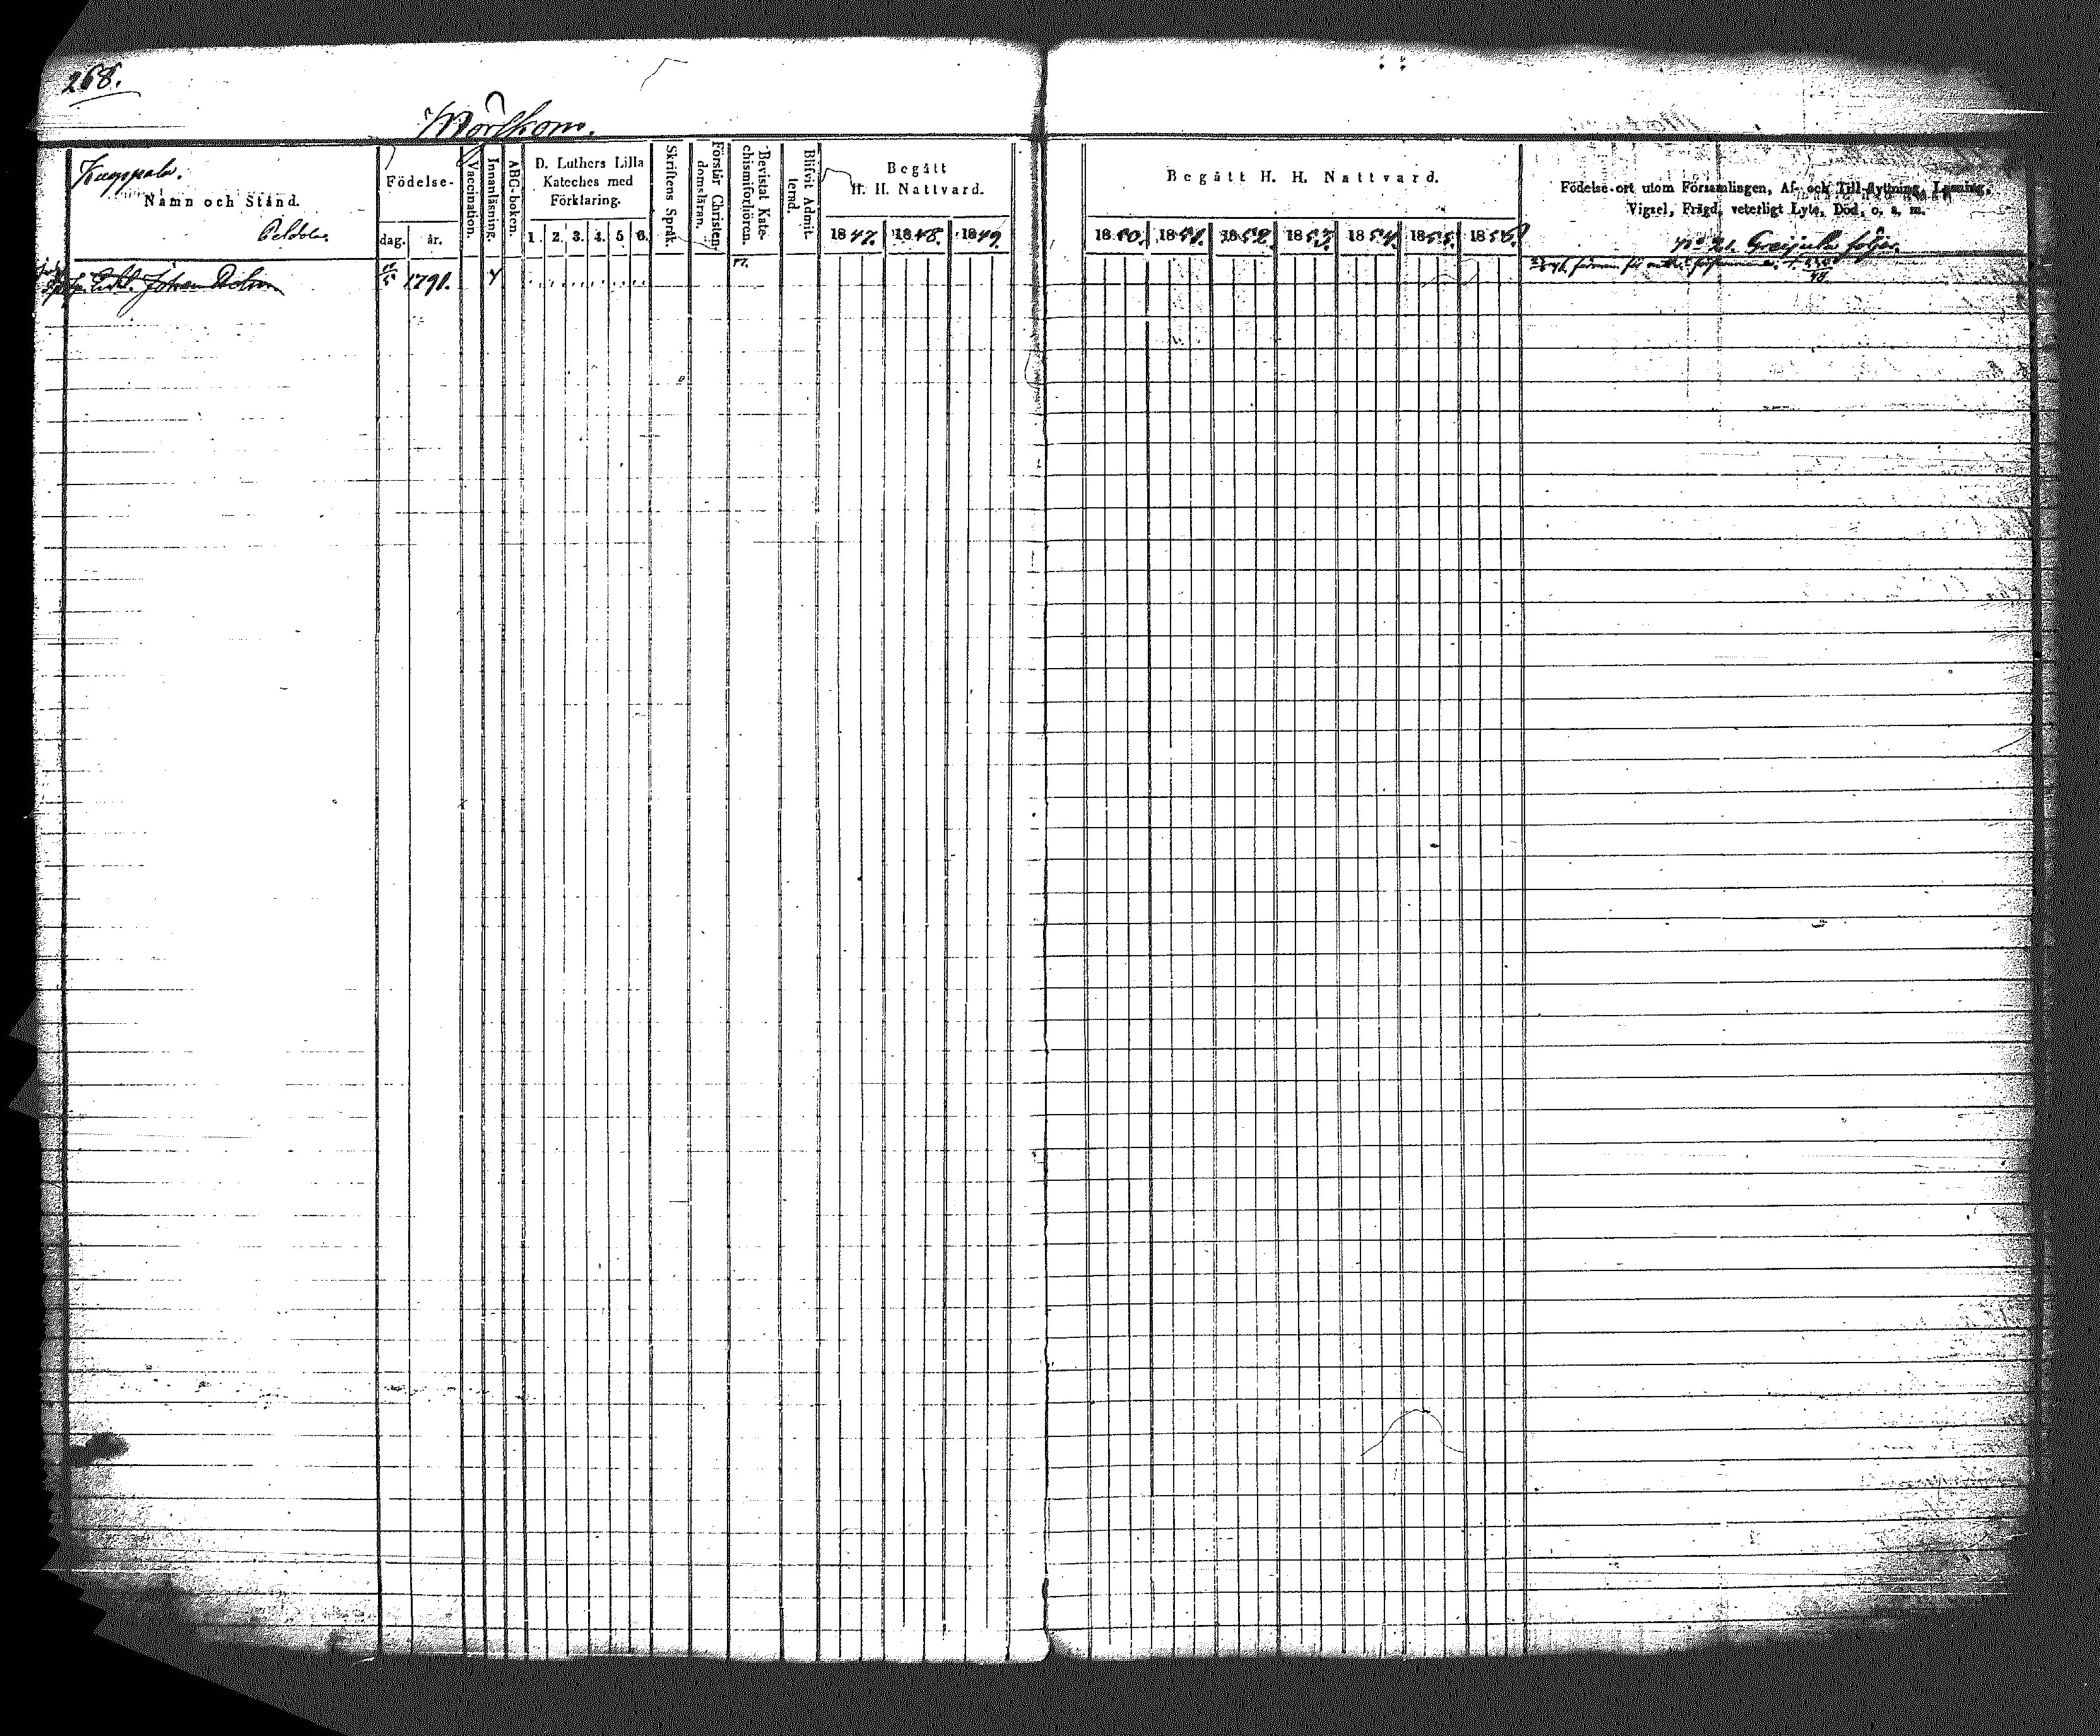 268.
Mörskom.
Kuuppala.
Namn och Stånd.
Födelse-
dag. år.
Vaccination.
Innanläsning.
ABC-boken.
D. Luthers Lilla
Kateches med
Förklaring.
1. 2. 3. 4. 5. 6.
Skriftens Språk.
Förstår Christen-
domsläran.
Bevistat Kate-
chismiförhören.
Blifvit Admit-
terad.
Begått
H. H. Nattvard.
1847. 1848. 1849.
Begått H. H. Nattvard.
1850. 1851. 1852. 1853. 1854. 1855. 1856.
Födelse-ort utom Församlingen, Af- och Till-flyttning, Lysning,
Vigsel, Frägd, veterligt Lyte, Död, o. s. m.
No 21. följer.
Johan 1791.